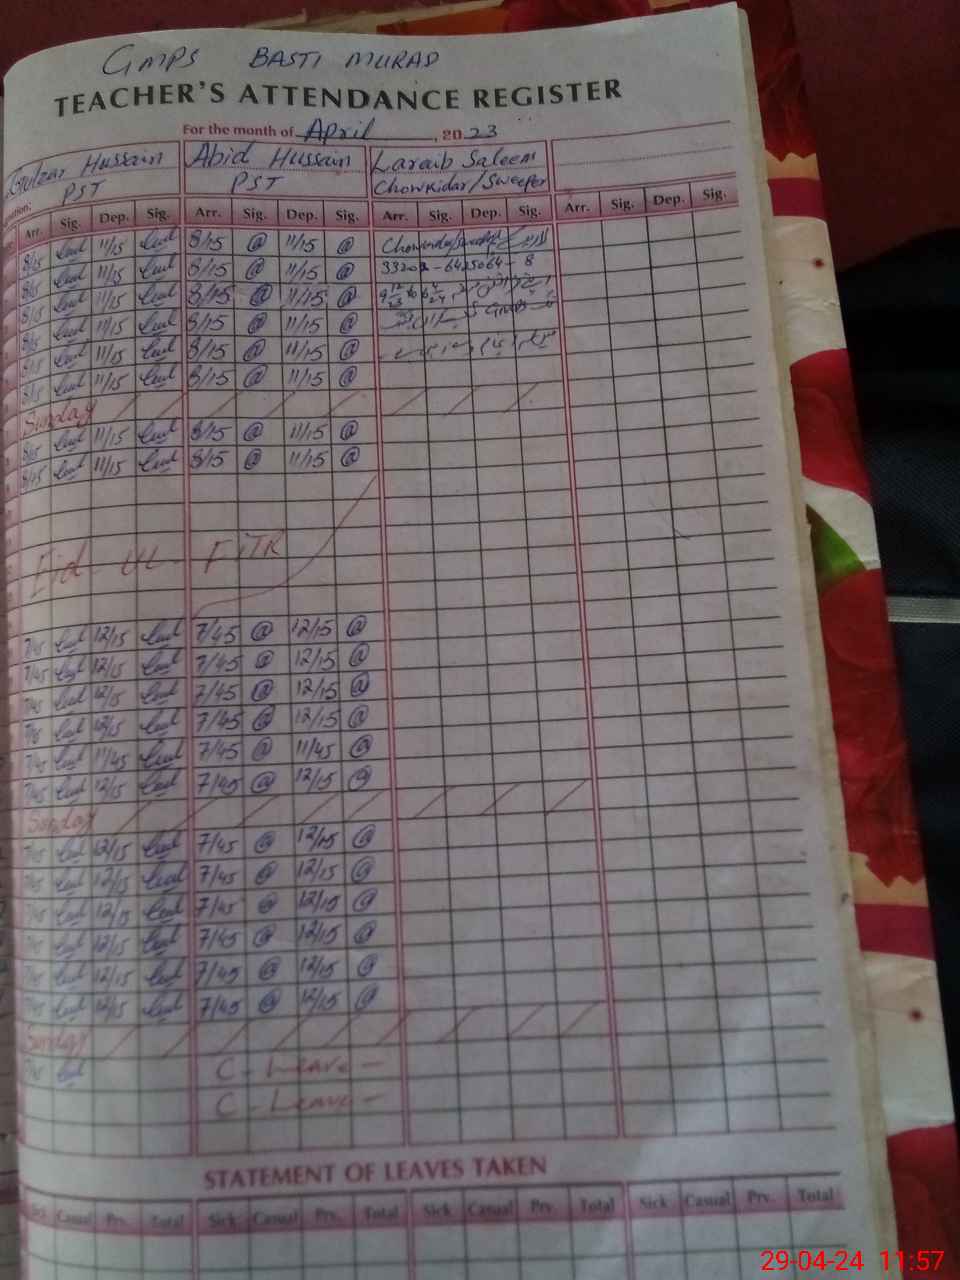 GMPS BASTI MURAD
TEACHER'S ATTENDANCE REGISTER
For the month of April, 2023
Gulzar Hussain Abid Hussain Laraib Saleem
PST PST Chowkidar/Sweeper
Arr. Sig. Dep. Sig. Arr. Sig. Dep. Sig. Arr. Sig. Dep. Sig. Arr. Sig. Dep. Sig.
8/15 11/15 8/15 @ 11/15 @
8/15 11/15 8/15 @ 11/15 @
8/15 11/15 8/15 @ 11/15 @
8/15 11/15 8/15 @ 11/15 @ GMPS
8/15 11/15 8/15 @ 11/15 @
8/15 11/15 8/15 @ 11/15 @
Sunday
8/15 11/15 8/15 @ 11/15 @
8/15 11/15 8/15 @ 11/15 @
Eid - UL - FITR
7/45 12/15 7/45 @ 12/15 @
7/45 12/15 7/45 @ 12/15 @
7/45 12/15 7/45 @ 12/15 @
7/45 12/15 7/45 @ 12/15 @
7/45 11/45 7/45 @ 11/45 @
7/45 12/15 7/45 @ 12/15 @
Sunday
7/45 12/15 7/45 @ 12/15 @
7/45 12/15 7/45 @ 12/15 @
7/45 12/15 7/45 @ 12/15 @
7/45 12/15 7/45 @ 12/15 @
7/45 12/15 7/45 @ 12/15 @
7/45 12/15 7/45 @ 12/15 @
Sunday
7/45 C - Leave -
C - Leave -
STATEMENT OF LEAVES TAKEN
Sick Casual Prv. Total Sick Casual Prv. Total Sick Casual Prv. Total Sick Casual Prv. Total
29-04-24 11:57